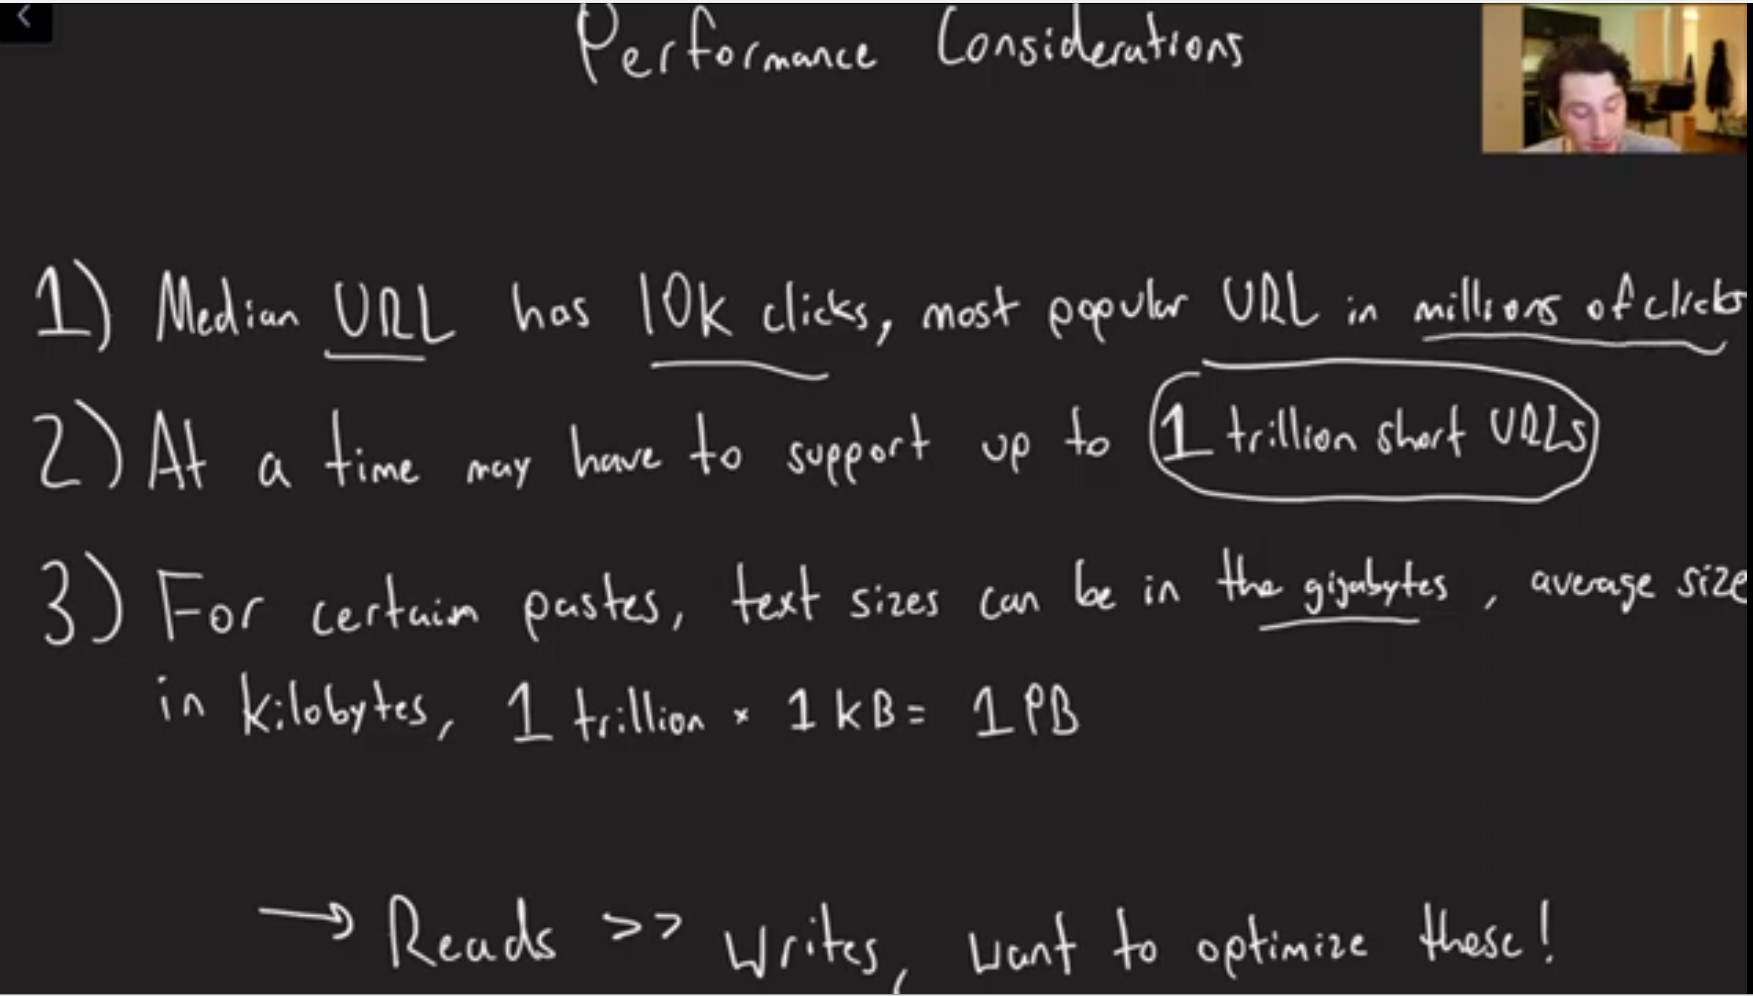 Performance Considerations
1) Median URL has 10k clicks, most popular URL in millions of clicks
2) At a time may have to support up to 1 trillion short URLs
3) For certain pastes, text sizes can be in the gigabytes, average size
in kilobytes, 1 trillion * 1 kB = 1 PB
→ Reads >> Writes, want to optimize these!